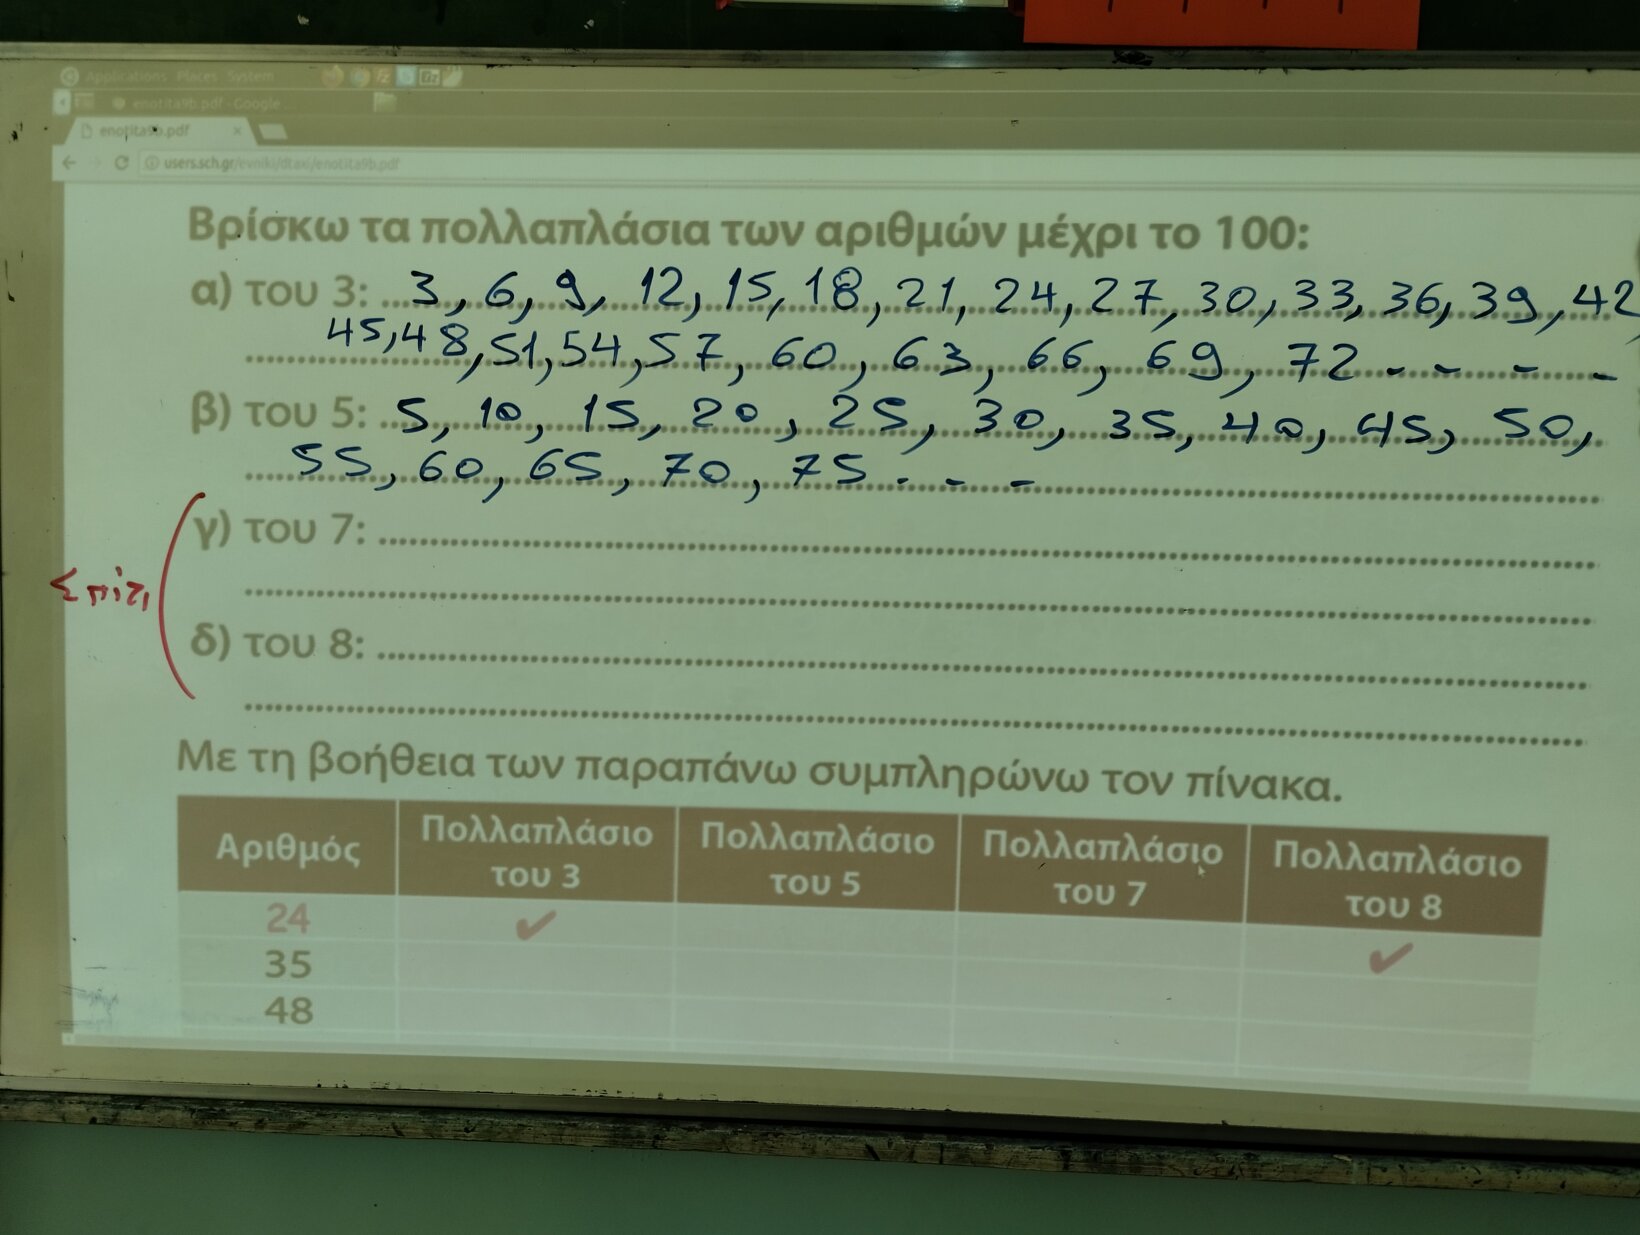 Applications Places System
enotita9b.pdf - Google ...
enotita9b.pdf ×
users.sch.gr/evniki/dtaxi/enotita9b.pdf
Βρίσκω τα πολλαπλάσια των αριθμών μέχρι το 100:
α) του 3: 3, 6, 9, 12, 15, 18, 21, 24, 27, 30, 33, 36, 39, 42,
45, 48, 51, 54, 57, 60, 63, 66, 69, 72 - - - -
β) του 5: 5, 10, 15, 20, 25, 30, 35, 40, 45, 50,
55, 60, 65, 70, 75 - - -
γ) του 7:
Σπίτι
δ) του 8:
Με τη βοήθεια των παραπάνω συμπληρώνω τον πίνακα.
Αριθμός Πολλαπλάσιο του 3 Πολλαπλάσιο του 5 Πολλαπλάσιο του 7 Πολλαπλάσιο του 8
24 ✔ ✔
35
48